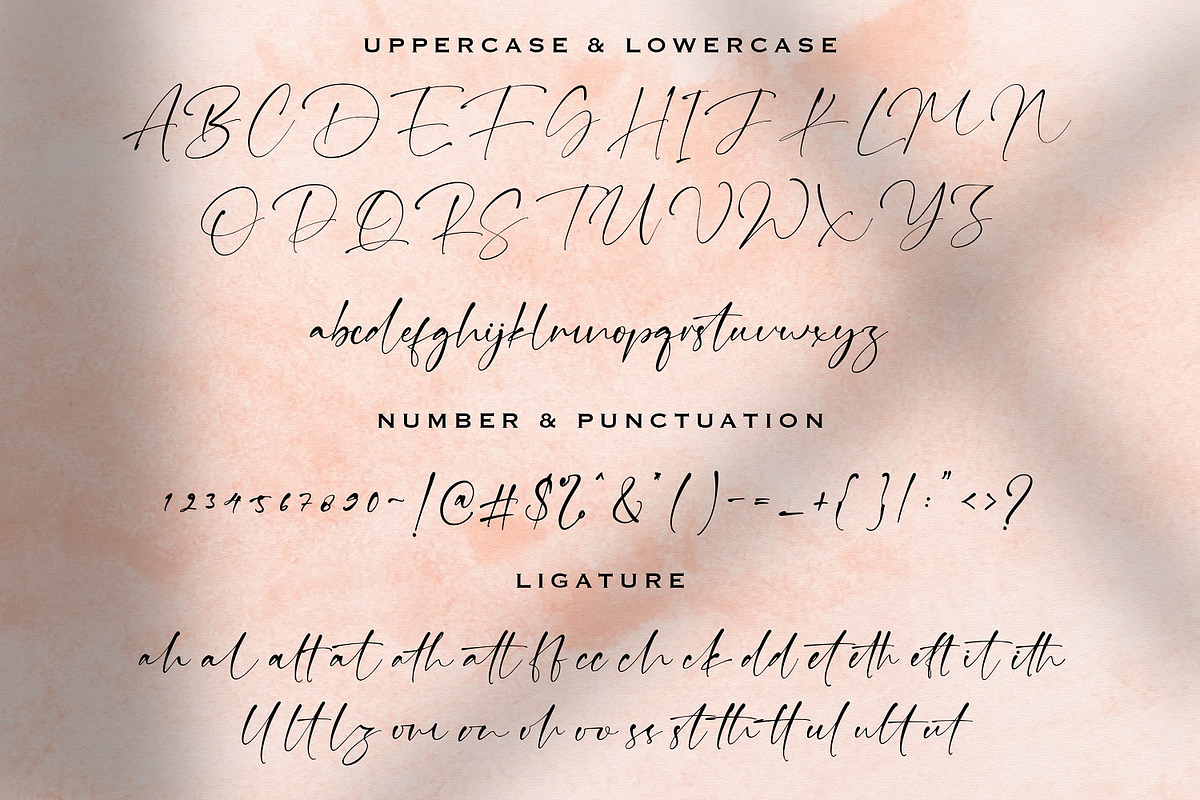 UPPERCASE & LOWERCASE
A B C D E F G H I J K L M N
O P Q R S T U V W X Y Z
abcdefghijklmnopqrstuvwxyz
NUMBER & PUNCTUATION
1 2 3 4 5 6 7 8 9 0 ~ ! @ # $ % ^ & * ( ) - = _ + { } | : " < > ?
LIGATURE
ah al alt at ath att ff cc ch ck dd et eth ett it ith
ll lt lz om on oh oo ss st th tt ul ult ut